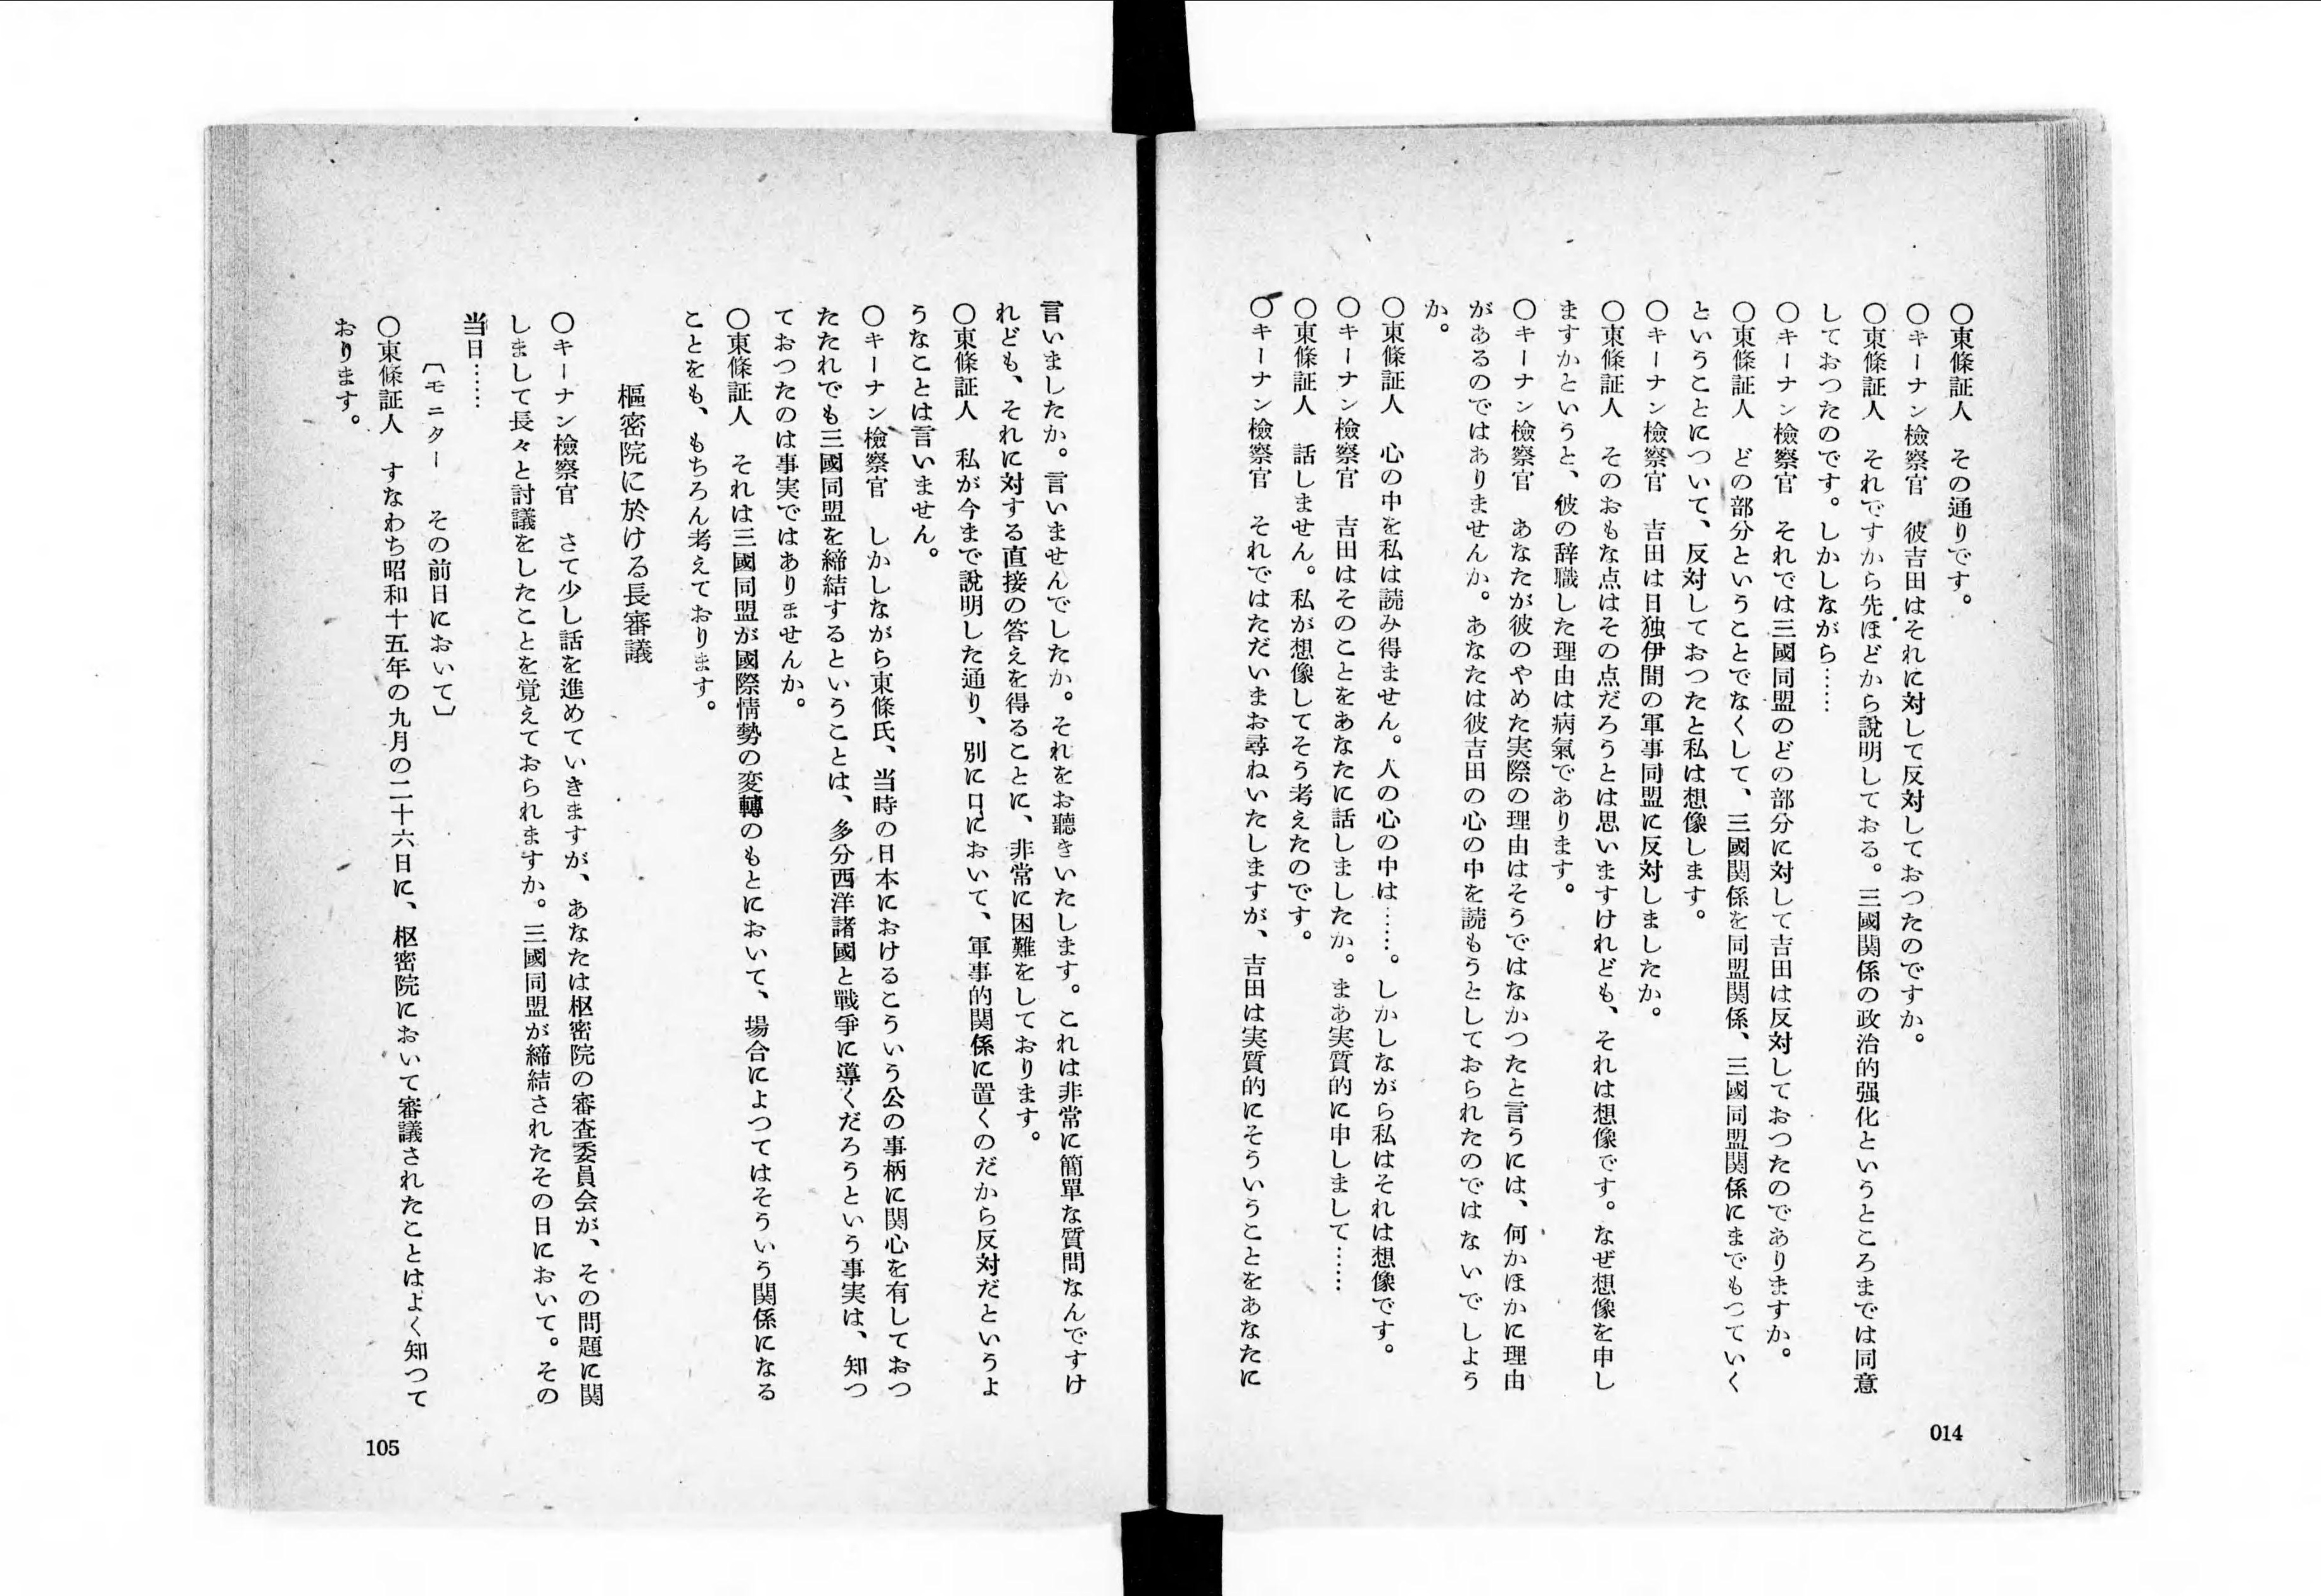 〇東條証人　その通りです。
〇キーナン檢察官　彼吉田はそれに対して反対しておつたのですか。
〇東條証人　それですから先ほどから説明しておる。三國関係の政治的强化というところまでは同意
しておつたのです。しかしながら……
〇キーナン檢察官　それでは三國同盟のどの部分に対して吉田は反対しておつたのでありますか。
〇東條証人　どの部分ということでなくして、三國関係を同盟関係、三國同盟関係にまでもつていく
ということについて、反対しておつたと私は想像します。
〇キーナン檢察官　吉田は日独伊間の軍事同盟に反対しましたか。
〇東條証人　そのおもな点はその点だろうとは思いますけれども、それは想像です。なぜ想像を申し
ますかというと、彼の辞職した理由は病氣であります。
〇キーナン檢察官　あなたが彼のやめた実際の理由はそうではなかつたと言うには、何かほかに理由
があるのではありませんか。あなたは彼吉田の心の中を読もうとしておられたのではないでしよう
か。
〇東條証人　心の中を私は読み得ません。人の心の中は……。しかしながら私はそれは想像です。
〇キーナン檢察官　吉田はそのことをあなたに話しましたか。まあ実質的に申しまして……
〇東條証人　話しません。私が想像してそう考えたのです。
〇キーナン檢察官　それではただいまお尋ねいたしますが、吉田は実質的にそういうことをあなたに
014
言いましたか。言いませんでしたか。それをお聽きいたします。これは非常に簡單な質問なんですけ
れども、それに対する直接の答えを得ることに、非常に困難をしております。
〇東條証人　私が今まで説明した通り、別に口において、軍事的関係に置くのだから反対だというよ
うなことは言いません。
〇キーナン檢察官　しかしながら東條氏、当時の日本におけるこういう公の事柄に関心を有しておつ
たたれでも三國同盟を締結するということは、多分西洋諸國と戰爭に導くだろうという事実は、知つ
ておつたのは事実ではありませんか。
〇東條証人　それは三國同盟が國際情勢の変轉のもとにおいて、場合によつてはそういう関係になる
ことをも、もちろん考えております。
樞密院に於ける長審議
〇キーナン檢察官　さて少し話を進めていきますが、あなたは枢密院の審査委員会が、その問題に関
しまして長々と討議をしたことを覚えておられますか。三國同盟が締結されたその日において。その
当日……
〔モニター　その前日において〕
〇東條証人　すなわち昭和十五年の九月の二十六日に、枢密院において審議されたことはよく知つて
おります。
105